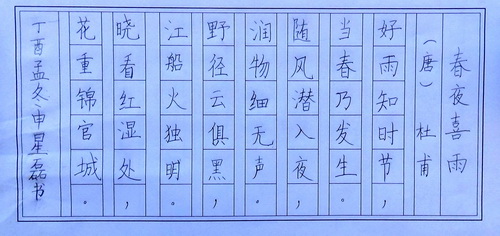 春夜喜雨
（唐）杜甫
好雨知时节，
当春乃发生。
随风潜入夜，
润物细无声。
野径云俱黑，
江船火独明。
晓看红湿处，
花重锦官城。
丁酉孟冬申星磊书